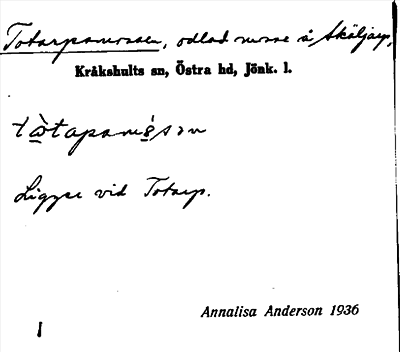 Totarpamossen, odlad mosse å Sköljarp,
Kråkshults sn, Östra hd, Jönk. l.
tòtapamósən
Ligger vid Totarp.
Annalisa Anderson 1936